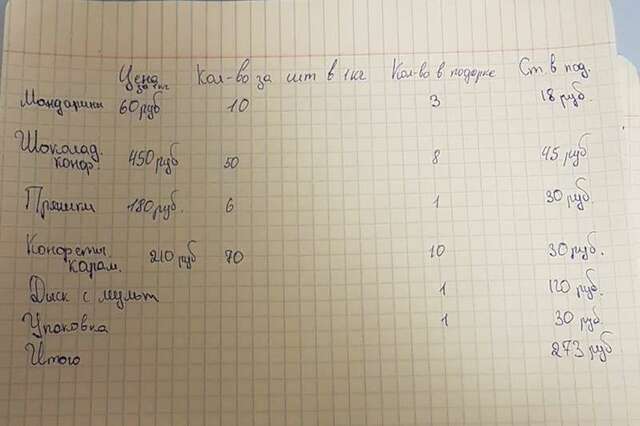 Цена за 1кг Кол-во за шт в 1кг Кол-во в подарке Ст. в под.
Мандарины 60руб 10 3 18 руб.
Шоколад. конф. 450руб 50 8 45 руб
Пряники 180руб. 6 1 30 руб.
Конфеты карам. 210 руб 70 10 30 руб.
Диск с мульт 1 120 руб.
Упаковка 1 30 руб.
Итого 273 руб